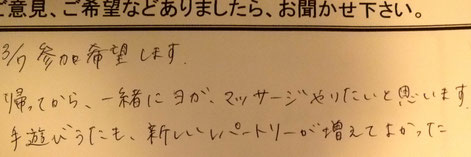 ご意見、ご希望などありましたら、お聞かせ下さい。
3/7 参加希望します.
帰ってから、一緒にヨガ、マッサージやりたいと思います
手遊びうたも、新しいレパートリーが増えてよかった